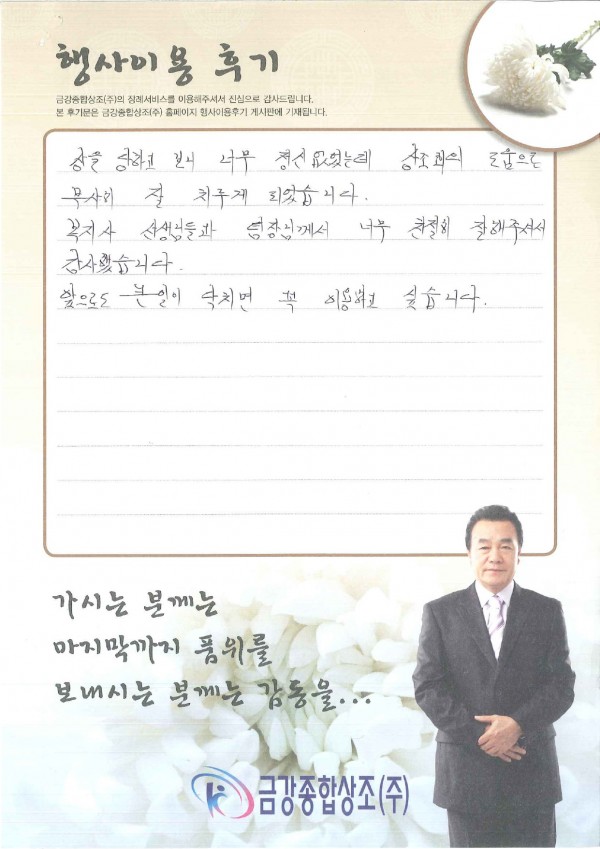 행사이용 후기
금강종합상조(주)의 장례서비스를 이용해주셔서 진심으로 감사드립니다.
본 후기문은 금강종합상조(주) 홈페이지 행사이용후기 게시판에 기재됩니다.
상을 당하고 보니 너무 정신 없었는데 상조과의 도움으로
무사히 잘 치루게 되었습니다.
복지사 선생님들과 팀장님께서 너무 친절히 잘해주셔서
감사했습니다.
앞으로도 큰일이 닥치면 꼭 이용하고 싶습니다.
가시는 분께는
마지막까지 품위를
보내시는 분께는 감동을...
금강종합상조(주)